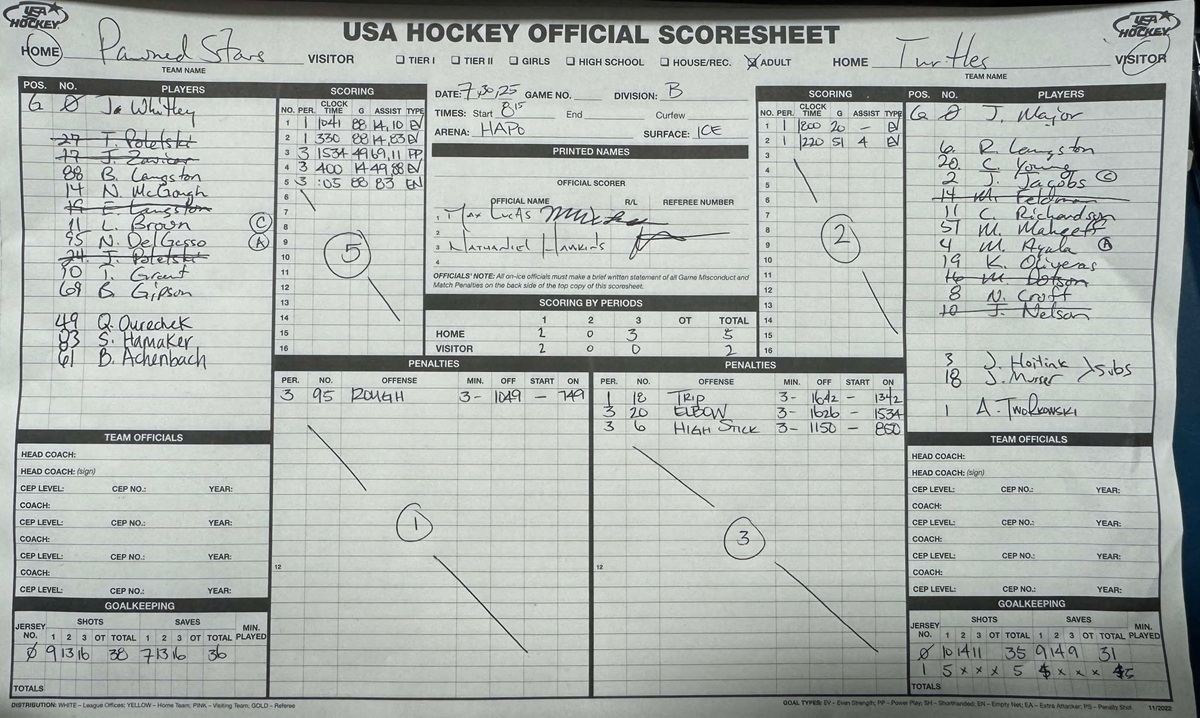 USA HOCKEY
USA HOCKEY OFFICIAL SCORESHEET
USA HOCKEY
HOME Pawned Stars VISITOR
TEAM NAME
☐ TIER I ☐ TIER II ☐ GIRLS ☐ HIGH SCHOOL ☐ HOUSE/REC. ☒ ADULT
HOME Turtles VISITOR
TEAM NAME
POS. NO. PLAYERS
G Ø Jo Whitley
27 T. Poletski
17 J. Zavicar
88 B. Langston
14 N. McGough
19 E. Langston
11 L. Brown C
95 N. DelGasso A
24 J. Poletski
10 T. Grant
69 B. Gipson
49 Q. Ourechek
83 S. Hamaker
61 B. Achenbach
SCORING
NO. PER. CLOCK TIME G ASSIST TYPE
1 1 1041 88 14,10 EV
2 1 330 88 14,83 EV
3 3 1534 49 69,11 PP
4 3 400 14 49,88 EV
5 3 :03 88 83 EN
6
7
8
9
10
11
12
13
14
15
16
5
DATE: 7,30,25 GAME NO. DIVISION: B
TIMES: Start 8:15 End Curfew
ARENA: HAPO SURFACE: ICE
PRINTED NAMES
OFFICIAL SCORER
OFFICIAL NAME R/L REFEREE NUMBER
1. Max Lucas
2
3 Nathaniel Hawkins
4
OFFICIALS' NOTE: All on-ice officials must make a brief written statement of all Game Misconduct and
Match Penalties on the back side of the top copy of this scoresheet.
SCORING BY PERIODS
1 2 3 OT TOTAL
HOME 2 0 3 5
VISITOR 2 0 0 2
SCORING
NO. PER. CLOCK TIME G ASSIST TYPE
1 1 800 20 - EV
2 1 220 51 4 EV
3
4
5
6
7
8
9
10
11
12
13
14
15
16
2
POS. NO. PLAYERS
G Ø J. Major
6 R. Langston
20 C. Young
2 J. Jacobs C
14 M. Feldman
11 C. Richardson
51 M. Maheeff
4 M. Ayala A
19 K. Oliveras
16 M. Dotson
8 N. Croft
10 J. Nelson
3 J. Hoitink
18 J. Musser > subs
1 A. Tworkowski
PENALTIES
PER. NO. OFFENSE MIN. OFF START ON
3 95 ROUGH 3- 1049 - 749
12
1
PENALTIES
PER. NO. OFFENSE MIN. OFF START ON
1 18 TRIP 3- 1642 - 1342
3 20 ELBOW 3- 1626 - 1534
3 6 HIGH STICK 3- 1150 - 850
12
3
TEAM OFFICIALS
HEAD COACH:
HEAD COACH: (sign)
CEP LEVEL: CEP NO.: YEAR:
COACH:
CEP LEVEL: CEP NO.: YEAR:
COACH:
CEP LEVEL: CEP NO.: YEAR:
COACH:
CEP LEVEL: CEP NO.: YEAR:
GOALKEEPING
JERSEY NO. SHOTS SAVES MIN. PLAYED
1 2 3 OT TOTAL 1 2 3 OT TOTAL
Ø 9 13 16 38 7 13 16 36
TOTALS
TEAM OFFICIALS
HEAD COACH:
HEAD COACH: (sign)
CEP LEVEL: CEP NO.: YEAR:
COACH:
CEP LEVEL: CEP NO.: YEAR:
COACH:
CEP LEVEL: CEP NO.: YEAR:
COACH:
CEP LEVEL: CEP NO.: YEAR:
GOALKEEPING
JERSEY NO. SHOTS SAVES MIN. PLAYED
1 2 3 OT TOTAL 1 2 3 OT TOTAL
Ø 10 14 11 35 9 14 9 31
1 5 x x x 5 x x x 5
TOTALS
DISTRIBUTION: WHITE – League Offices; YELLOW – Home Team; PINK – Visiting Team; GOLD – Referee
GOAL TYPES: EV – Even Strength; PP – Power Play; SH – Shorthanded; EN – Empty Net; EA – Extra Attacker; PS – Penalty Shot 11/2022